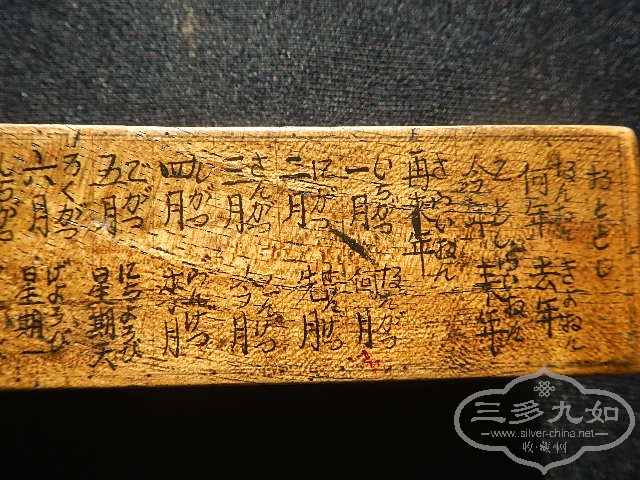 なんねん きょねん
何年 去年
ことし らいねん
今年 来年
さらいねん
再来年
いちがつ なんがつ
一月 何月
にがつ せんげつ
二月 先月
さんがつ こんげつ
三月 今月
しがつ
四月 月
ごがつ にちようび
五月 星期天
ろくがつ げようび
六月 星期一
しちがつ
三多九如
www.silver-china.net
收·藏·网